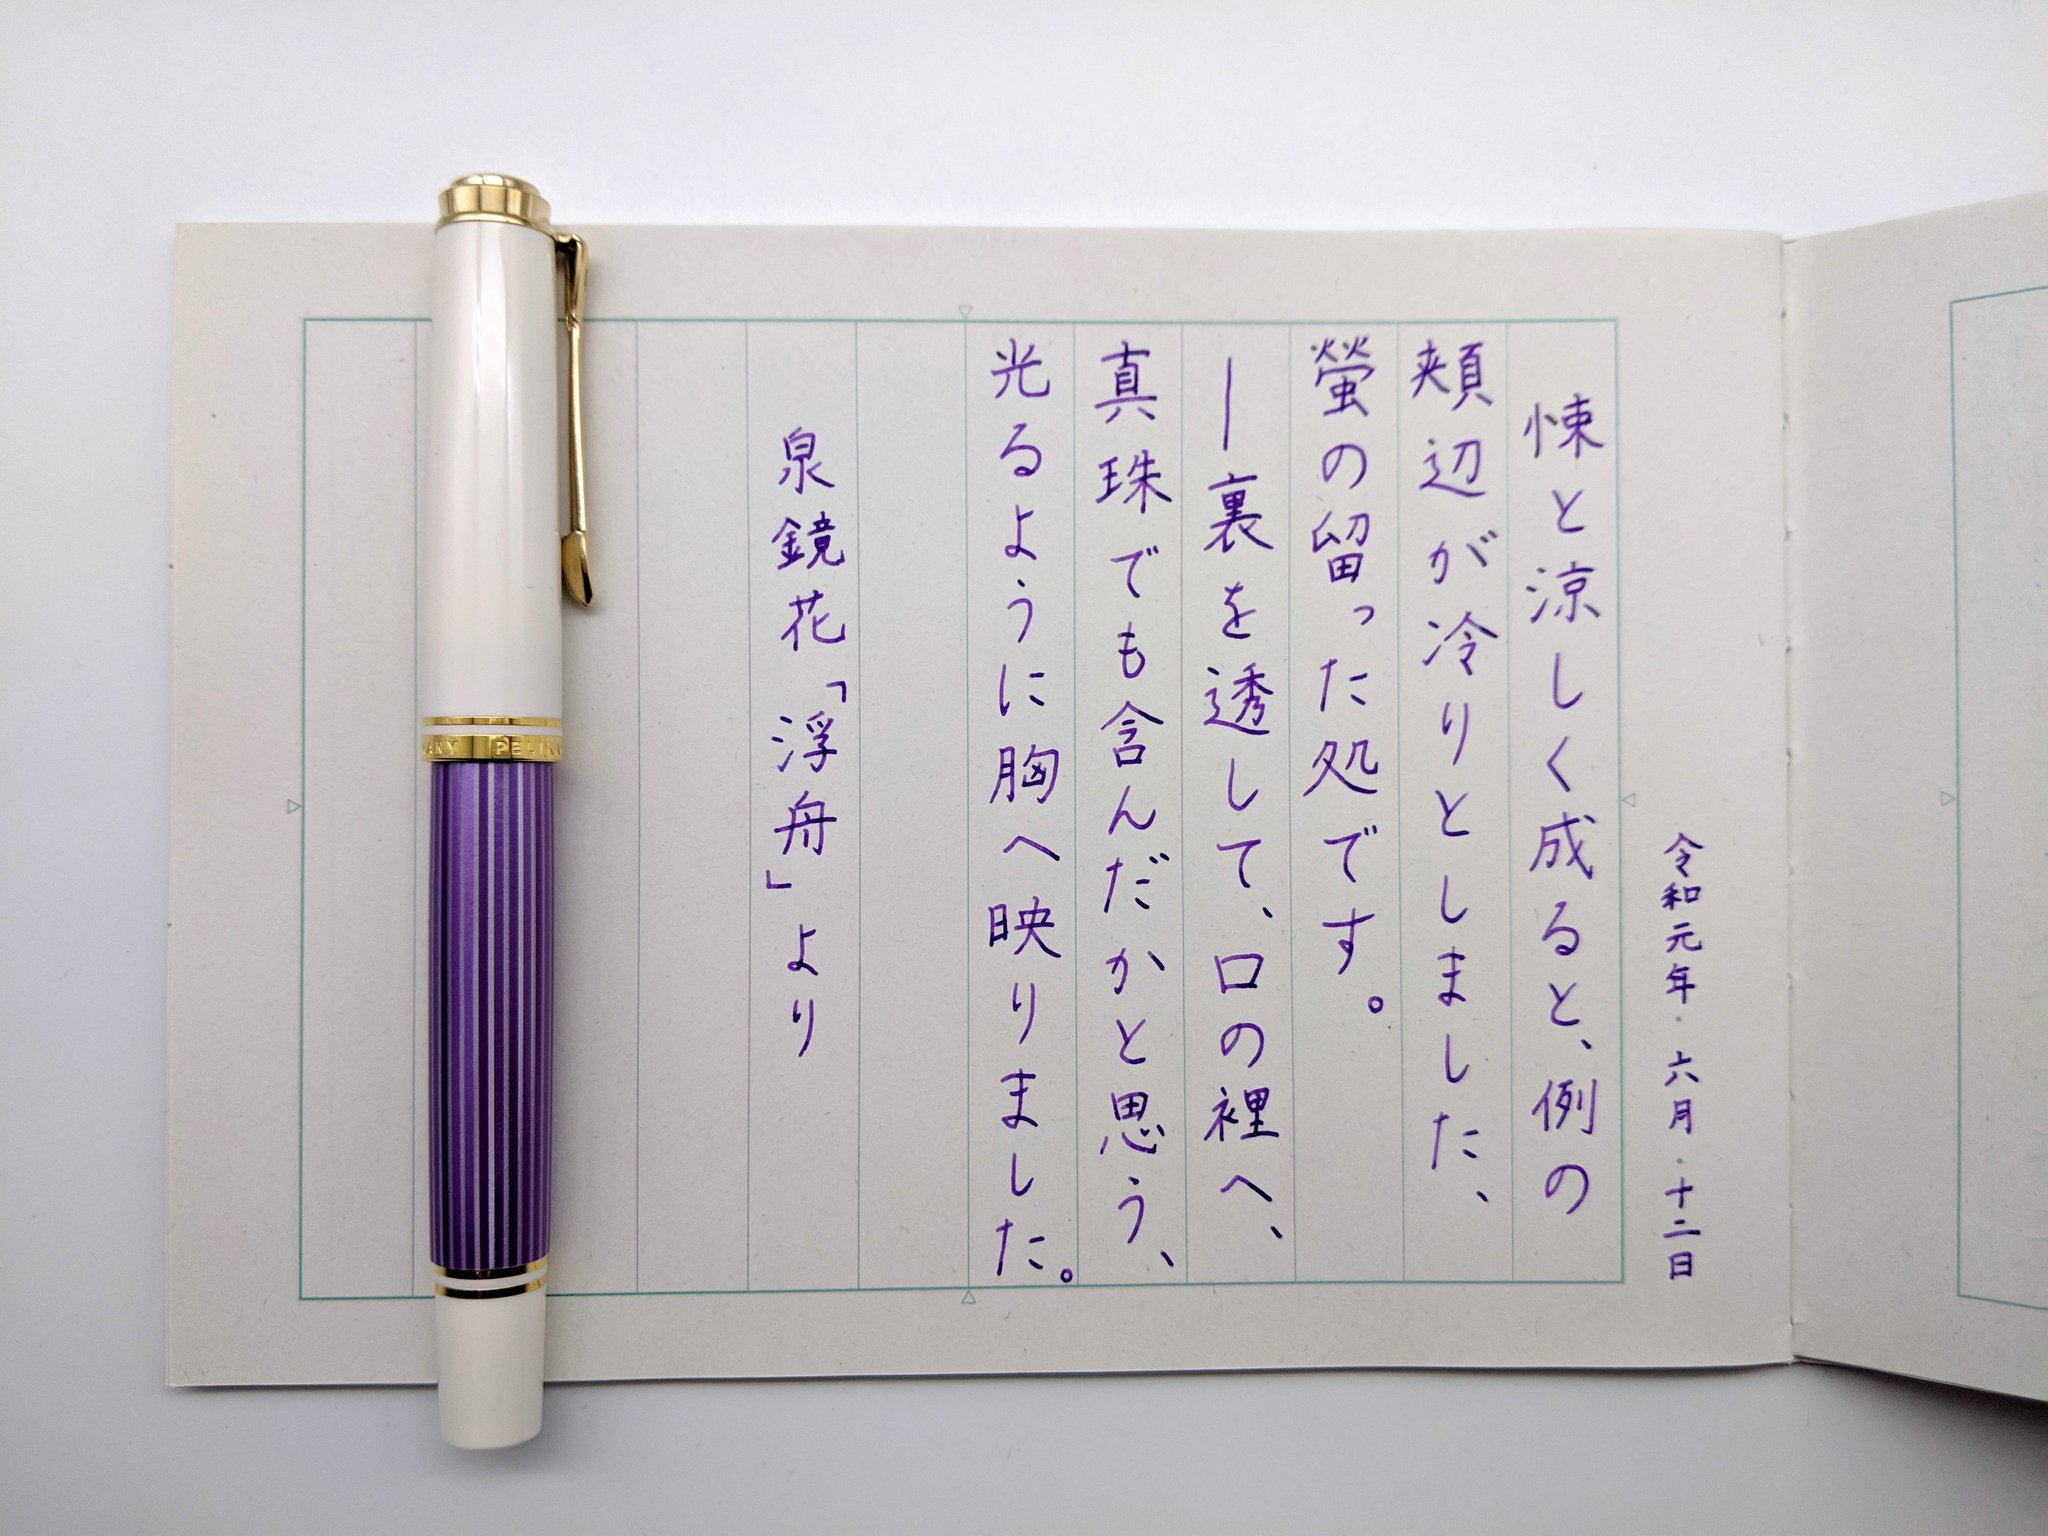 令和元年・六月・十二日
悚と涼しく成ると、例の
頬辺が冷りとしました、
螢の留った処です。
―裏を透して、口の裡へ、
真珠でも含んだかと思う、
光るように胸へ映りました。
泉鏡花「浮舟」より
ANY PELIK